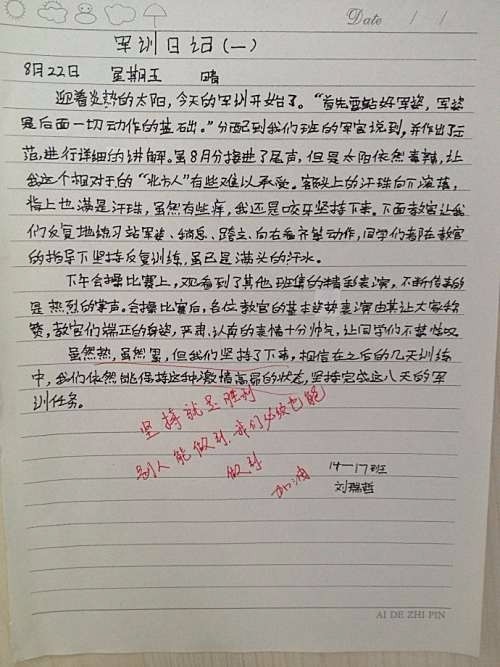 Date / /
军训日记(一)
8月22日 星期五 晴
迎着炎热的太阳,今天的军训开始了。“首先要站好军姿,军姿
是后面一切动作的基础。”分配到我们班的军官说到,并作出了示
范,进行详细的讲解。虽8月份接近了尾声,但是太阳依然毒辣,让
我这个相对于的“北方人”有些难以承受。额头上的汗珠向下滚落,
指上也满是汗珠,虽然有些痒,我还是咬牙坚持下来。下面教官让我
们反复地练习站军姿、稍息、跨立、向右看齐等动作,同学们都在教官
的指导下坚持反复训练,虽已是满头的汗水。
下午会操比赛上,观看到了其他班集的精彩表演,不断传来的
是热烈的掌声。会操比赛后,各位教官的基本姿势表演由其让大家称
赞,教官们端正的身姿,严肃、认真的表情十分帅气,让同学们不禁惊叹
虽然热,虽然累,但我们坚持了下来,相信在之后的几天训练
中,我们依然能保持这种激情高昂的状态,坚持完成这八天的军
训任务。
坚持就是胜利
别人能做到,我们必须也能
做到
加油
14-17班
刘瑞哲
AI DE ZHI PIN